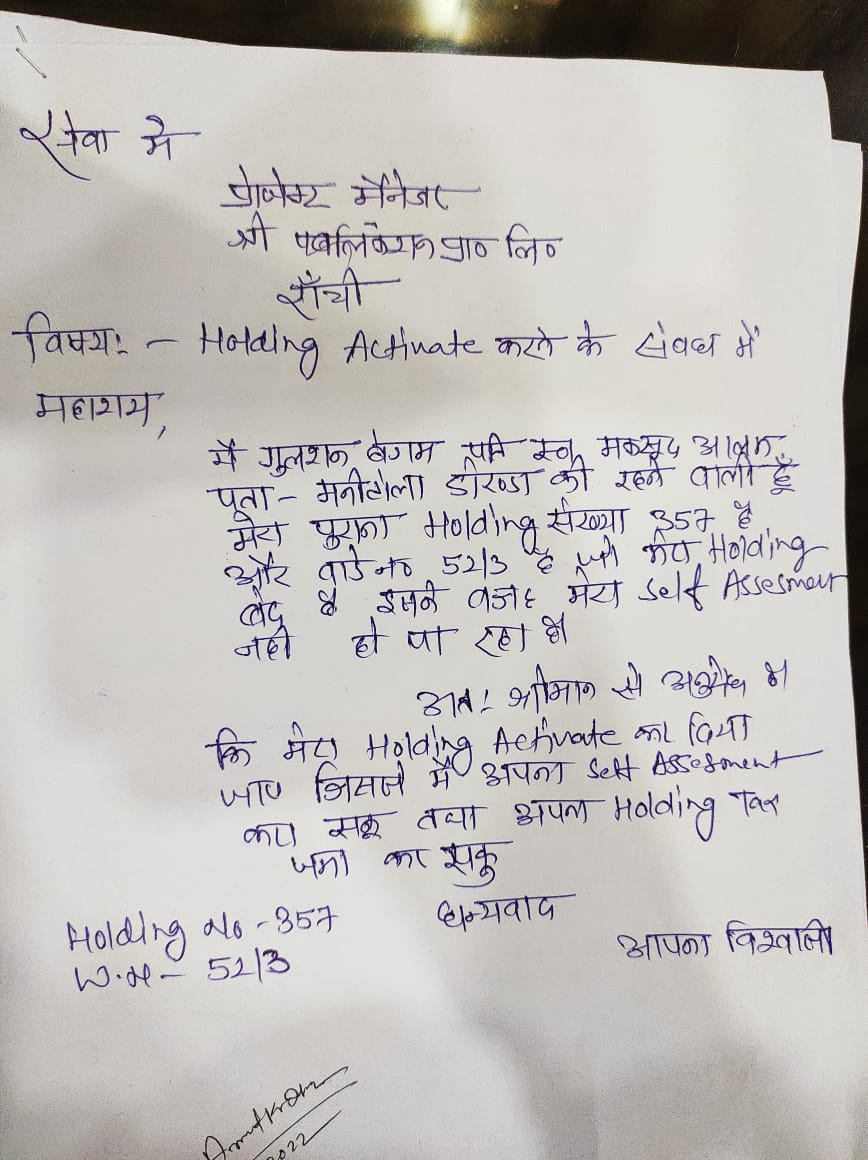 सेवा मे
प्रोजेक्ट मैनेजर
श्री पब्लिकेशन प्रा० लि०
राँची
विषयः - Holding Activate करने के संबध में
महाशय,
मैं गुलशन बेगम पति स्व० मकसूद आलम
पता - मनीटोला डोरण्डा की रहने वाली हूँ
मेरा पुराना Holding संख्या 357 है
और वार्ड न० 52/3 है जो मेरा Holding
बंद है इसके वजह मेरा Self Assesment
नही हो पा रहा है।
अतः श्रीमान से अनुरोध है
कि मेरा Holding Activate कर दिया
जाए जिससे मैं अपना Self Assesment
करा सकू तथा अपना Holding Tax
जमा कर सकु
धन्यवाद
Holding No - 357
W.N - 52/3
आपका विश्वासी
2022